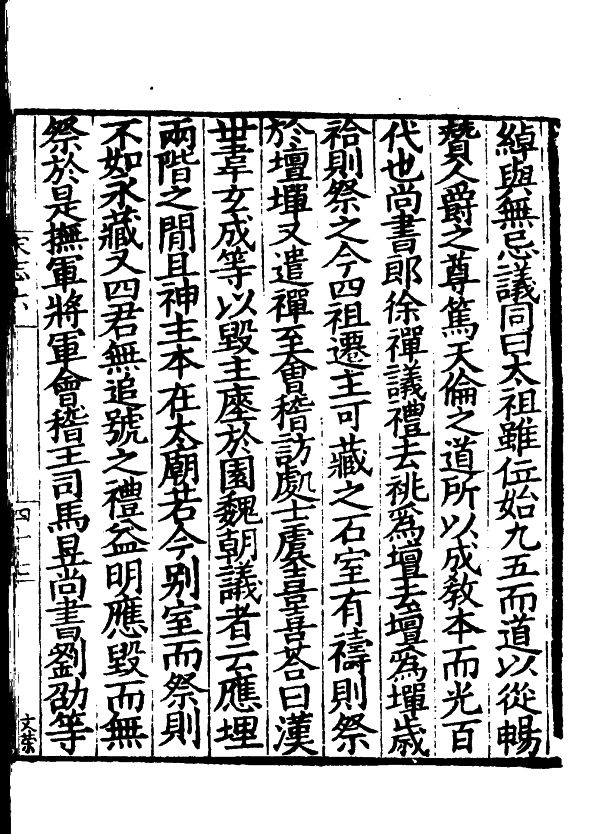 綽與無忌議同曰太祖雖位始九五而道以從暢
贊人爵之尊篤天倫之道所以成敎本而光百
代也尚書郎徐禪議禮去祧爲壇去壇爲墠歲
祫則祭之今四祖遷主可藏之石室有禱則祭
於壇墠又遣禪至會稽訪處士虞喜喜荅曰漢
世韋玄成等以毀主瘞於園魏朝議者云應埋
兩階之閒且神主本在太廟若今别室而祭則
不如永藏又四君無追號之禮益明應毀而無
祭於是撫軍將軍會稽王司馬昱尚書劉劭等
宋志六
文榮